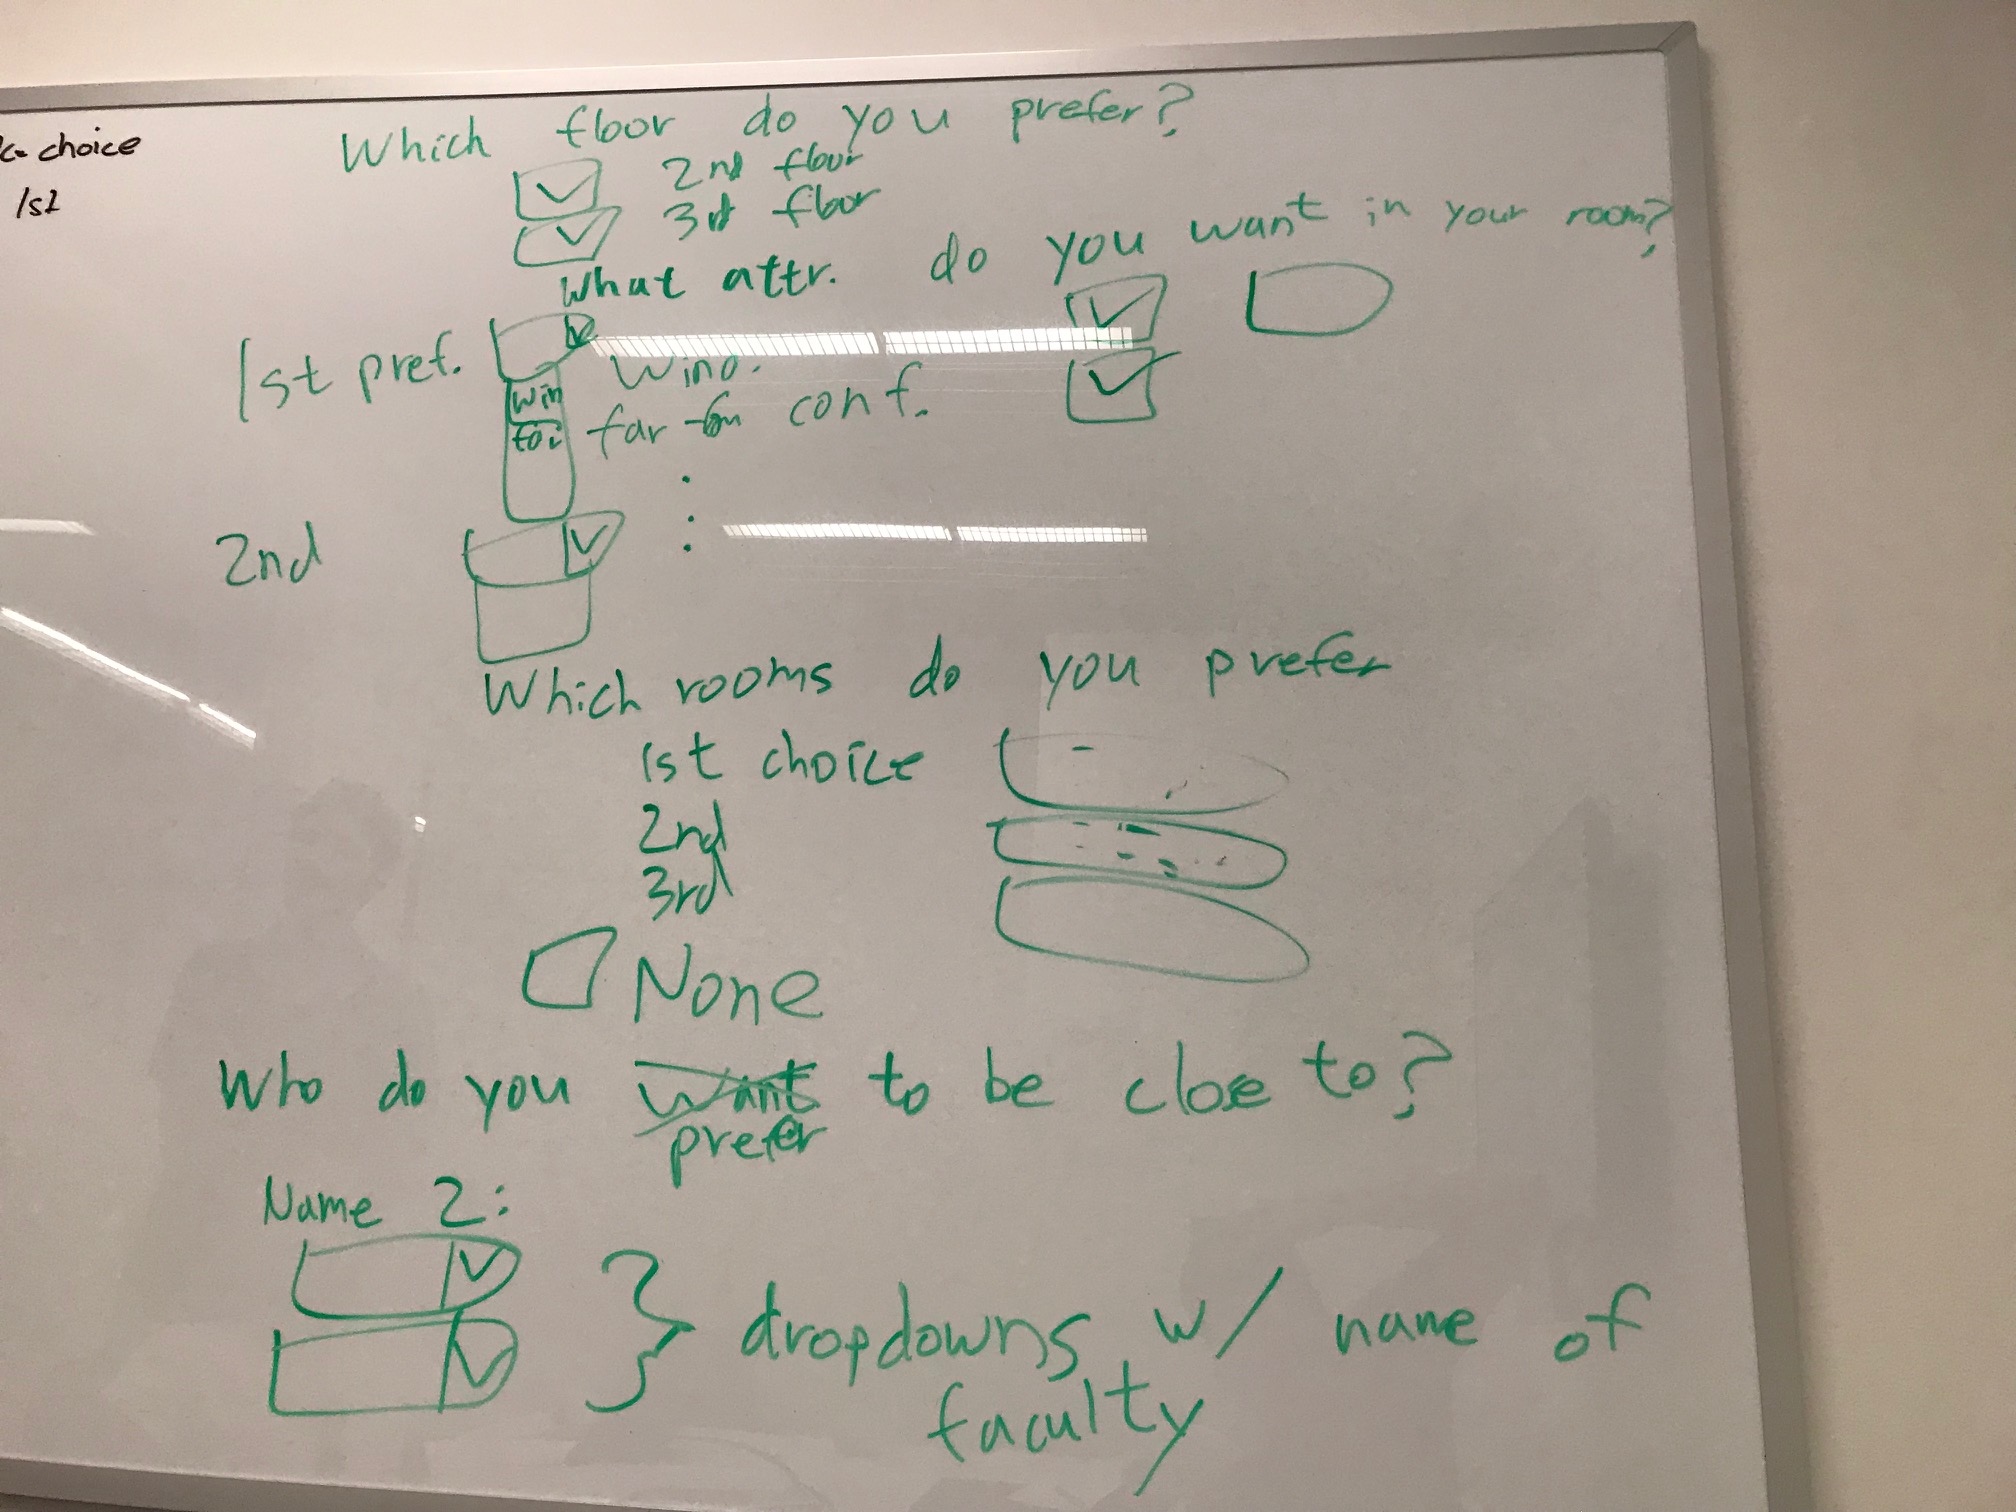 choice
1st
Which floor do you prefer?
2nd floor
3rd floor
What attr. do you want in your room?
1st pref.
Wind.
win
far fm conf.
toi
2nd
Which rooms do you prefer
1st choice
2nd
3rd
None
Who do you want to be close to?
prefer
Name 2:
dropdowns w/ name of
faculty